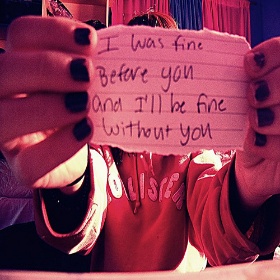 I was fine
Before you
and I'll be fine
without you